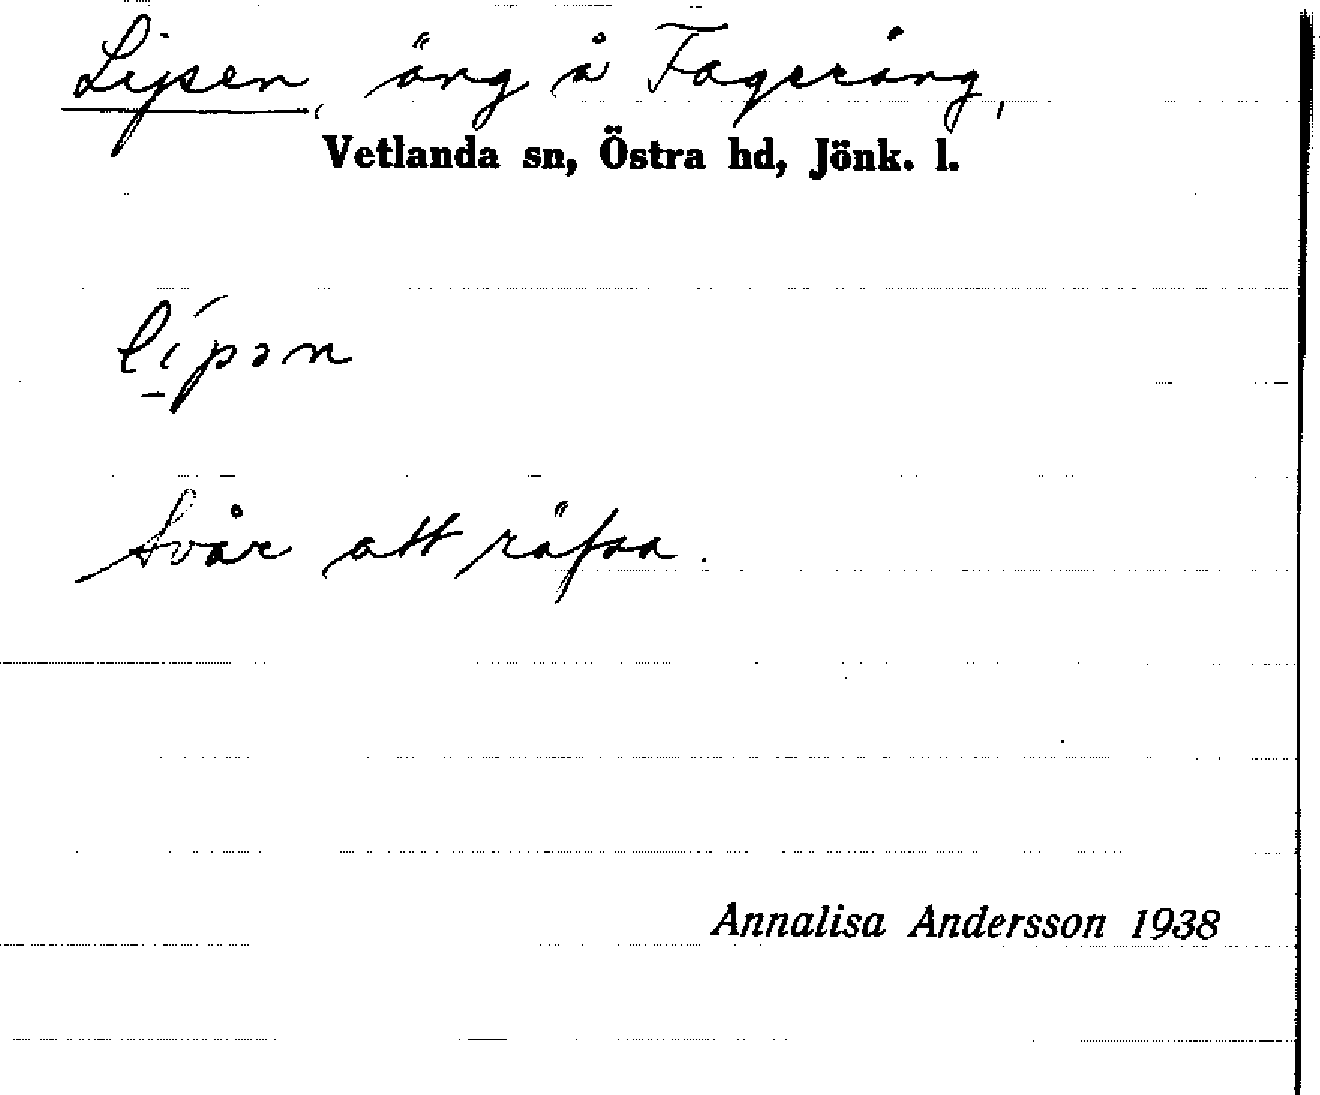 Lipen, äng å Fagerång,
Vetlanda sn, Östra hd, Jönk. l.
lí̱pən
Svår att räfsa.
Annalisa Andersson 1938